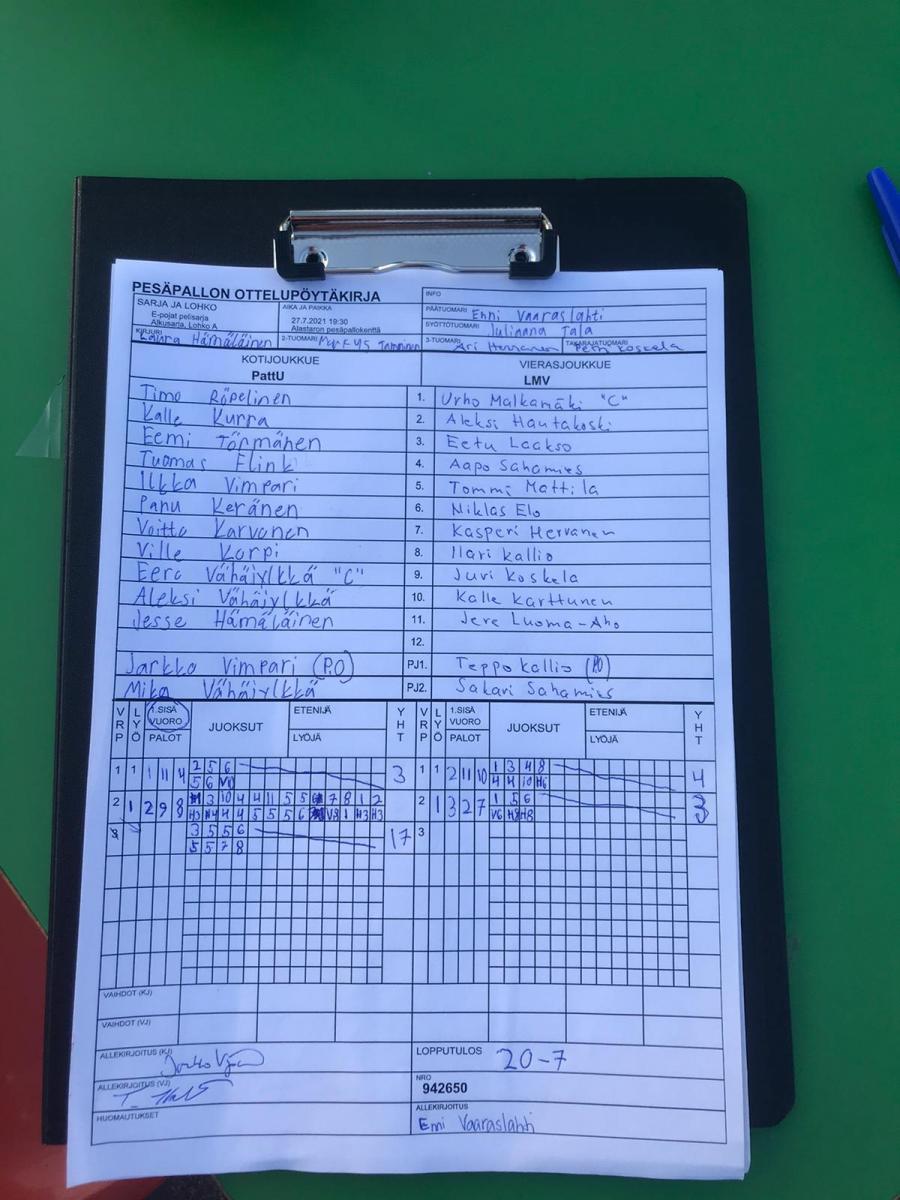 PESÄPALLON OTTELUPÖYTÄKIRJA
INFO
SARJA JA LOHKO
E-pojat pelisarja
Alkusarja, Lohko A
AIKA JA PAIKKA
27.7.2021 19:30
Alastaron pesäpallokenttä
PÄÄTUOMARI Enni Vaaraslahti
SYÖTTÖTUOMARI Juliaana Tala
KIRJURI Laura Hämäläinen
2-TUOMARI Tamminen
3-TUOMARI Ari Hervanen
TAKARAJATUOMARI Petri Koskela
KOTIJOUKKUE
PattU
VIERASJOUKKUE
LMV
Timo Röpelinen 1. Urho Malkamäki "C"
Kalle Kurra 2. Aleksi Hautakoski
Eemi Törmänen 3. Eetu Laakso
Tuomas Flink 4. Aapo Sahamies
Ilkka Vimpari 5. Tommi Mattila
Panu Keränen 6. Niklas Elo
Voitto Karvonen 7. Kasperi Hervanen
Ville Korpi 8. Ilari Kallio
Eero Vähäjylkkä "C" 9. Juvi Koskela
Aleksi Vähäjylkkä 10. Kalle Karttunen
Jesse Hämäläinen 11. Jere Luoma-Aho
12.
Jarkko Vimpari (P.O) PJ1. Teppo Kallio (P.O)
Mika Vähäjylkkä PJ2. Sakari Sahamies
VRP LYÖ 1.SISÄ VUORO PALOT JUOKSUT ETENIJÄ LYÖJÄ YHT VRP LYÖ 1.SISÄ VUORO PALOT JUOKSUT ETENIJÄ LYÖJÄ YHT
1 1 1 11 4 2 5 6 3 1 1 2 11 10 1 3 4 8 4
5 6 V10 4 4 10 H6
2 1 2 9 8 3 10 4 4 11 5 5 7 8 1 2 2 1 3 2 7 1 5 6 3
H3 4 4 5 5 5 6 V8 1 H3 H3 V6 H8 H8
3 3 5 5 6 17 3
5 5 7 8
VAIHDOT (KJ)
VAIHDOT (VJ)
ALLEKIRJOITUS (KJ)
LOPPUTULOS 20-7
ALLEKIRJOITUS (VJ)
NRO
942650
HUOMAUTUKSET
ALLEKIRJOITUS
Enni Vaaraslahti